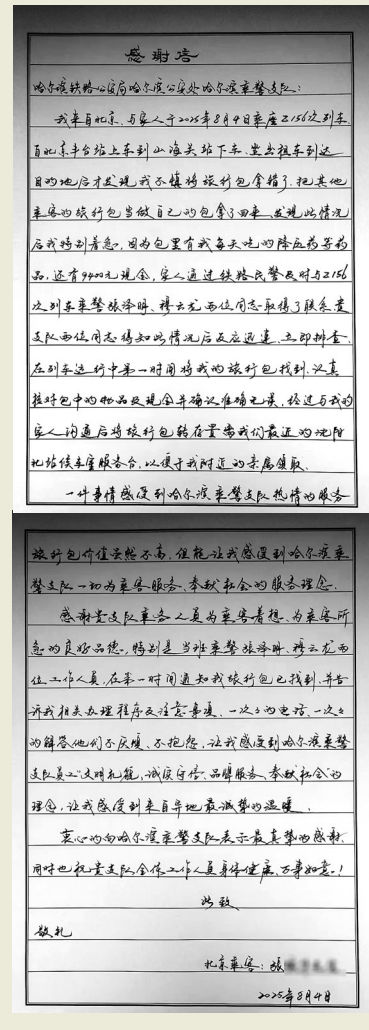 感谢信
哈尔滨铁路公安局哈尔滨公安处哈尔滨乘警支队:
我来自北京,与家人于2025年8月4日乘座Z156次列车
自北京丰台站上车到山海关站下车,坐出租车到达
目的地后才发现我不慎将旅行包拿错了,把其他
乘客的旅行包当做自己的包拿了回来,发现此情况
后我特别着急,因为包里有我每天吃的降压药等药
品,还有9400元现金,家人通过铁路民警及时与Z156
次列车乘警张泽明、穆云龙两位同志取得了联系,贵
支队两位同志得知此情况后反应迅速,立即排查,
在列车运行中第一时间将我的旅行包找到,认真
核对包中的物品及现金并确认准确无误,经过与我的
家人沟通后将旅行包转存置离我们最近的沈阳
北站候车室服务台,以便于我附近的亲属领取.
一件事情感受到哈尔滨乘警支队热情的服务
旅行包价值虽然不高,但能让我感受到哈尔滨乘
警支队一切为乘客服务、奉献社会的服务理念.
感谢贵支队乘务人员为乘客着想、为乘客所
急的良好品德,特别是当班乘警张泽明、穆云龙两
位工作人员,在第一时间通知我旅行包已找到,并告
诉我相关办理程序及注意事项,一次次的电话、一次次
的解答他们不厌烦、不抱怨,让我感受到哈尔滨乘警
支队员工"文明礼貌,诚实守信、品牌服务、奉献社会"的
理念,让我感受到来自异地最诚挚的温暖.
衷心的向哈尔滨乘警支队表示最真挚的感谢,
同时也祝贵支队全体工作人员身体健康、万事如意!
此致
敬礼
北京乘客:张
2025年8月4日